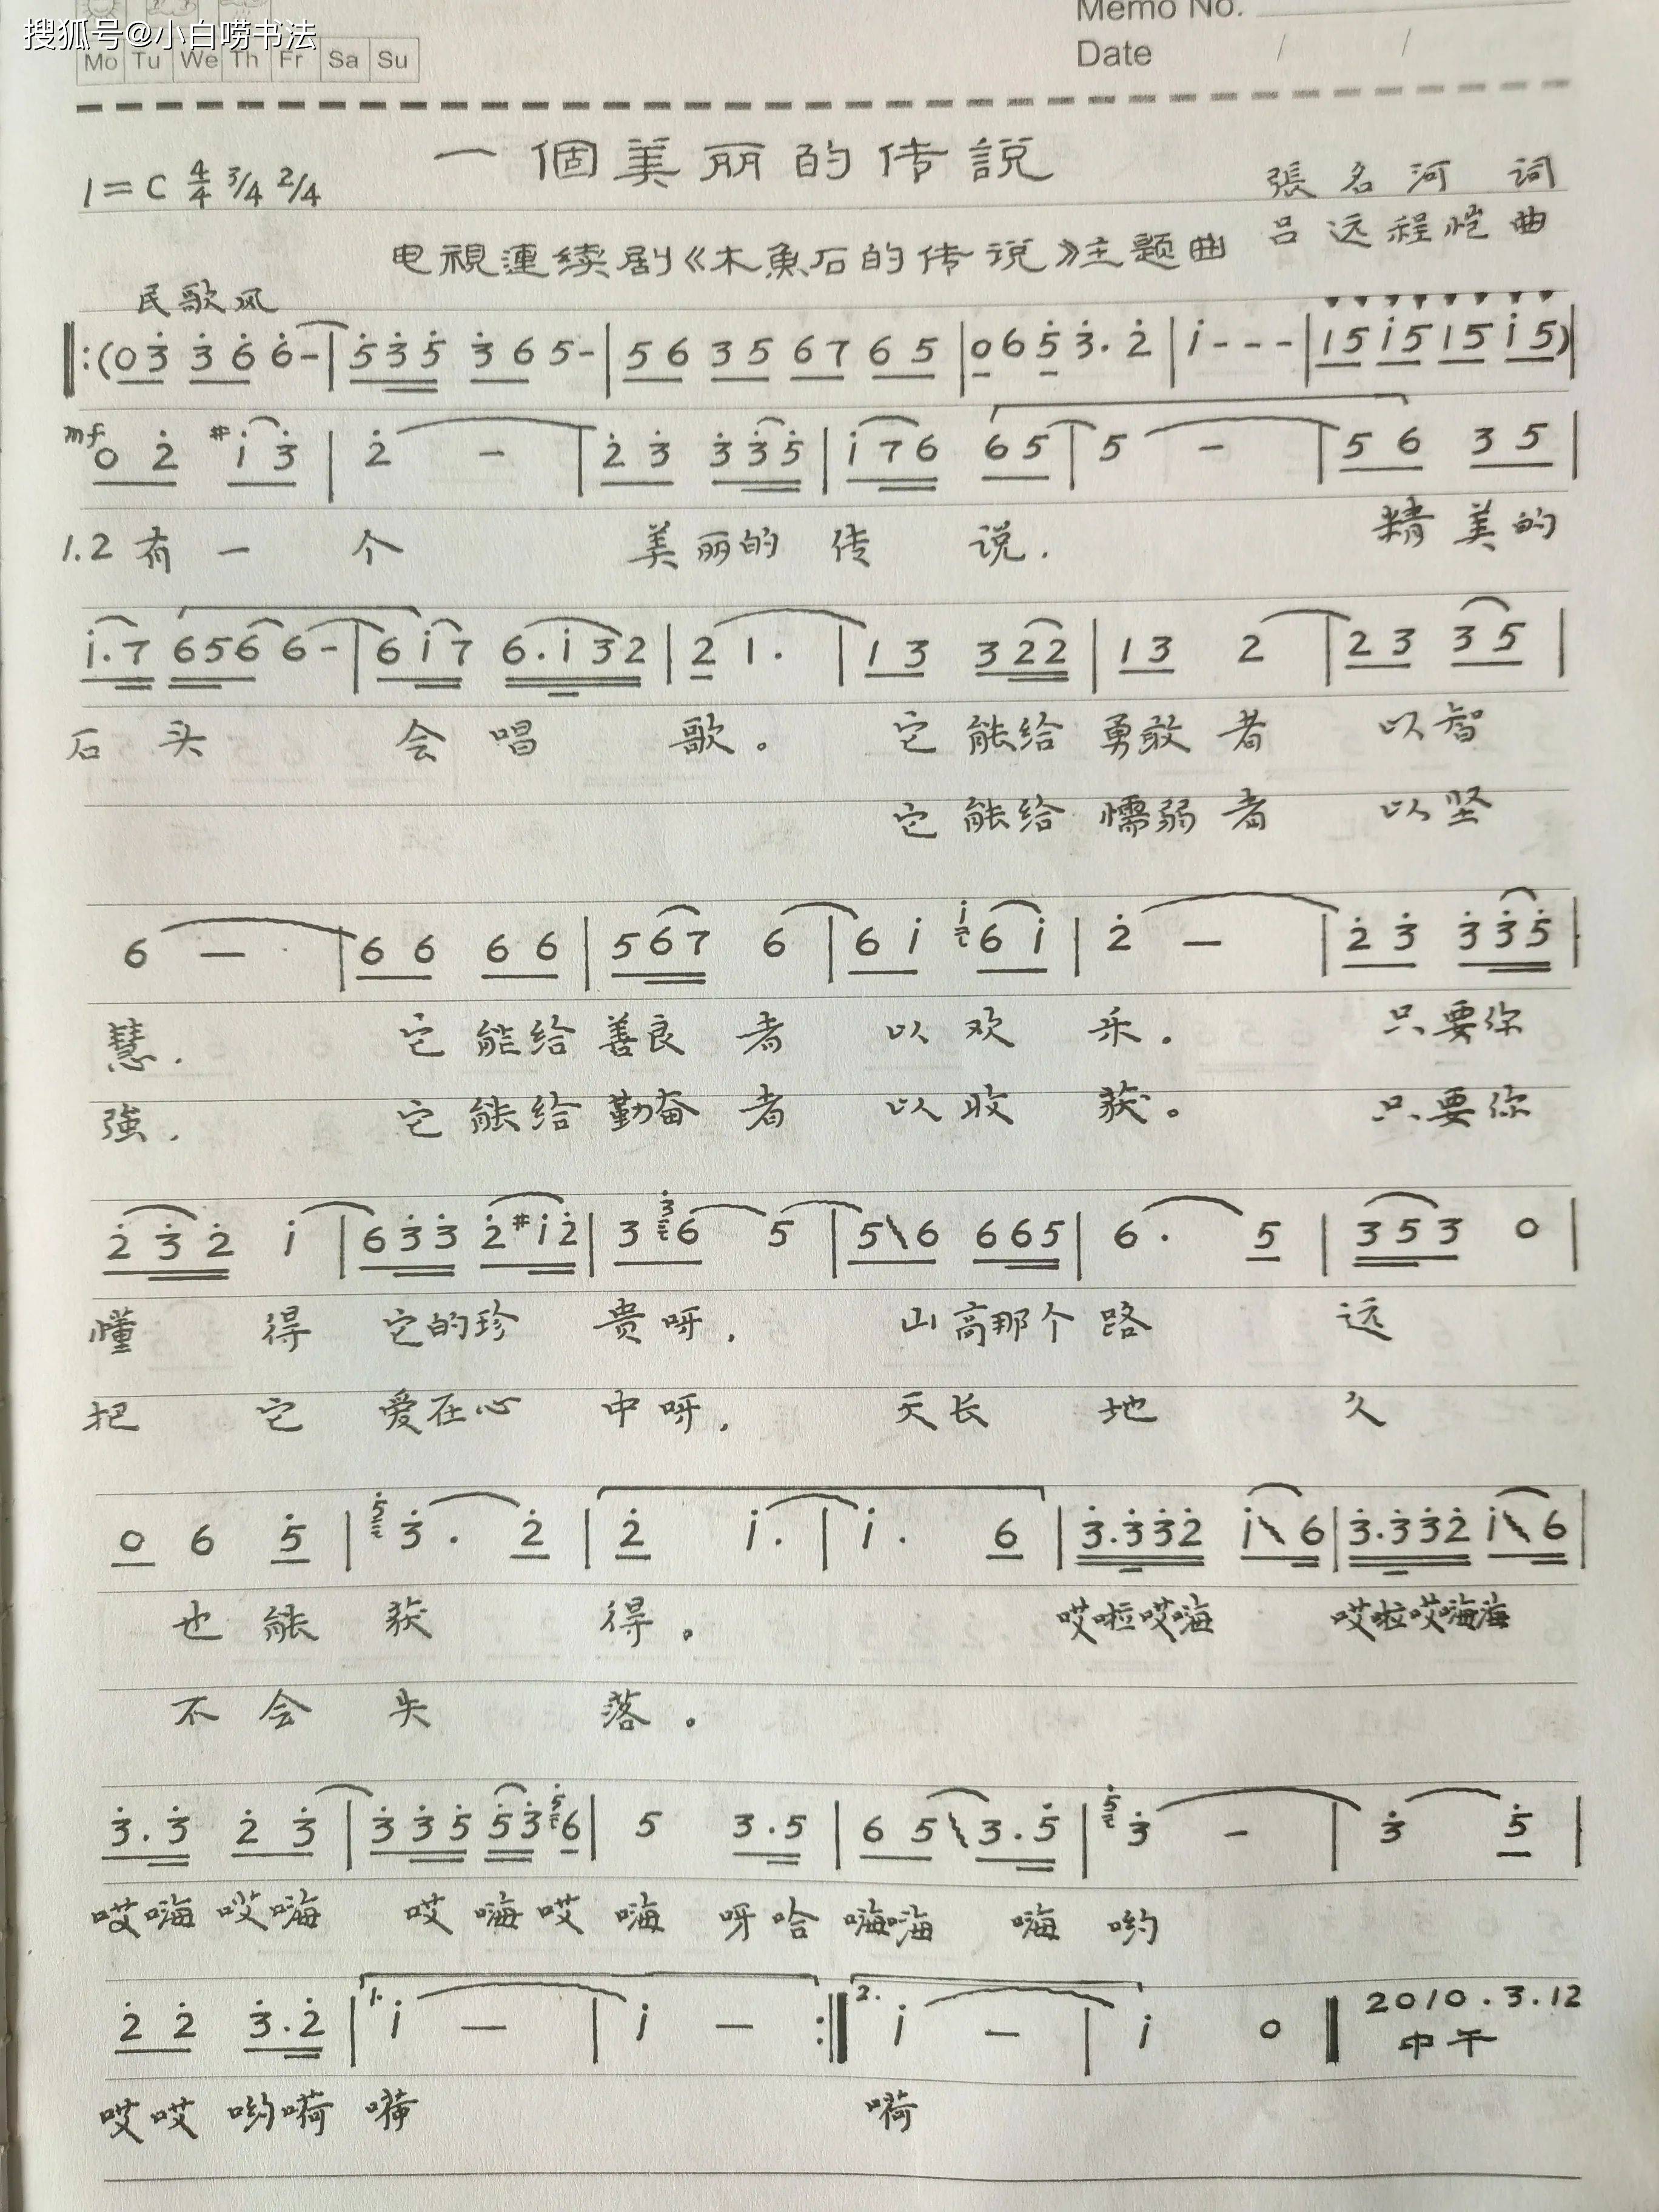 搜狐号@小白唠书法
Memo No.
Mo Tu We Th Fr Sa Su
Date / /
一個美丽的传説
1=C 4/4 3/4 2/4
張名河 词
电視連续剧《木魚石的传说》主题曲
吕远程恺曲
民歌风
‖:(0 3̇ 3̇ 6̇ 6̇ - | 5̇ 3̇ 5̇ 3̇ 6 5 - | 5 6 3 5 6 7 6 5 | 0 6 5̇ 3̇ . 2̇ | i - - - | 1 5 i 5 1 5 i 5) |
mf 0 2̇ #i 3̇ | 2̇ - | 2̇ 3̇ 3̇ 3̇ 5̇ | i 7 6 6 5 | 5 - | 5 6 3 5 |
1.2 有 一 个 美丽的 传 说. 精美的
i . 7 6 5 6 6 - | 6 i 7 6 . i 3 2 | 2 1 . | 1 3 3 2 2 | 1 3 2 | 2 3 3 5 |
石 头 会 唱 歌。 它 能给 勇敢 者 以智
它 能给 懦弱 者 以坚
6 - | 6 6 6 6 | 5 6 7 6 | 6 i i 6 i | 2̇ - | 2̇ 3̇ 3̇ 3̇ 5̇ |
慧. 它 能给 善良 者 以 欢 乐. 只要你
強. 它 能给 勤奋 者 以 收 获。 只要你
2̇ 3̇ 2̇ i | 6 3̇ 3̇ 2̇ #i 2̇ | 3 3̇ 6 5 | 5 \ 6 6 6 5 | 6 . 5 | 3 5 3 0 |
懂 得 它的珍 贵呀. 山高那个 路 远
把 它 爱在心 中呀. 天长 地 久
0 6 5̇ | 5̇ 3̇ . 2̇ | 2̇ i . | i . 6 | 3̇ . 3̇ 3̇ 2̇ i \ 6 | 3̇ . 3̇ 3̇ 2̇ i \ 6 |
也 能 获 得。 哎啦哎嗨 哎啦哎嗨海
不 会 失 落。
3̇ . 3̇ 2̇ 3̇ | 3̇ 3̇ 5̇ 5̇ 3̇ 5̇ 6 | 5 3 . 5 | 6 5 \ 3 . 5̇ | 5̇ 3̇ - | 3̇ 5̇ |
哎嗨 哎嗨 哎 嗨哎 嗨 呀哈 嗨嗨 嗨 哟
2̇ 2̇ 3̇ . 2̇ | 1. i - | i - :‖ 2. i - | i 0 ‖ 2010.3.12
中午
哎哎 哟嗬 嗬 嗬